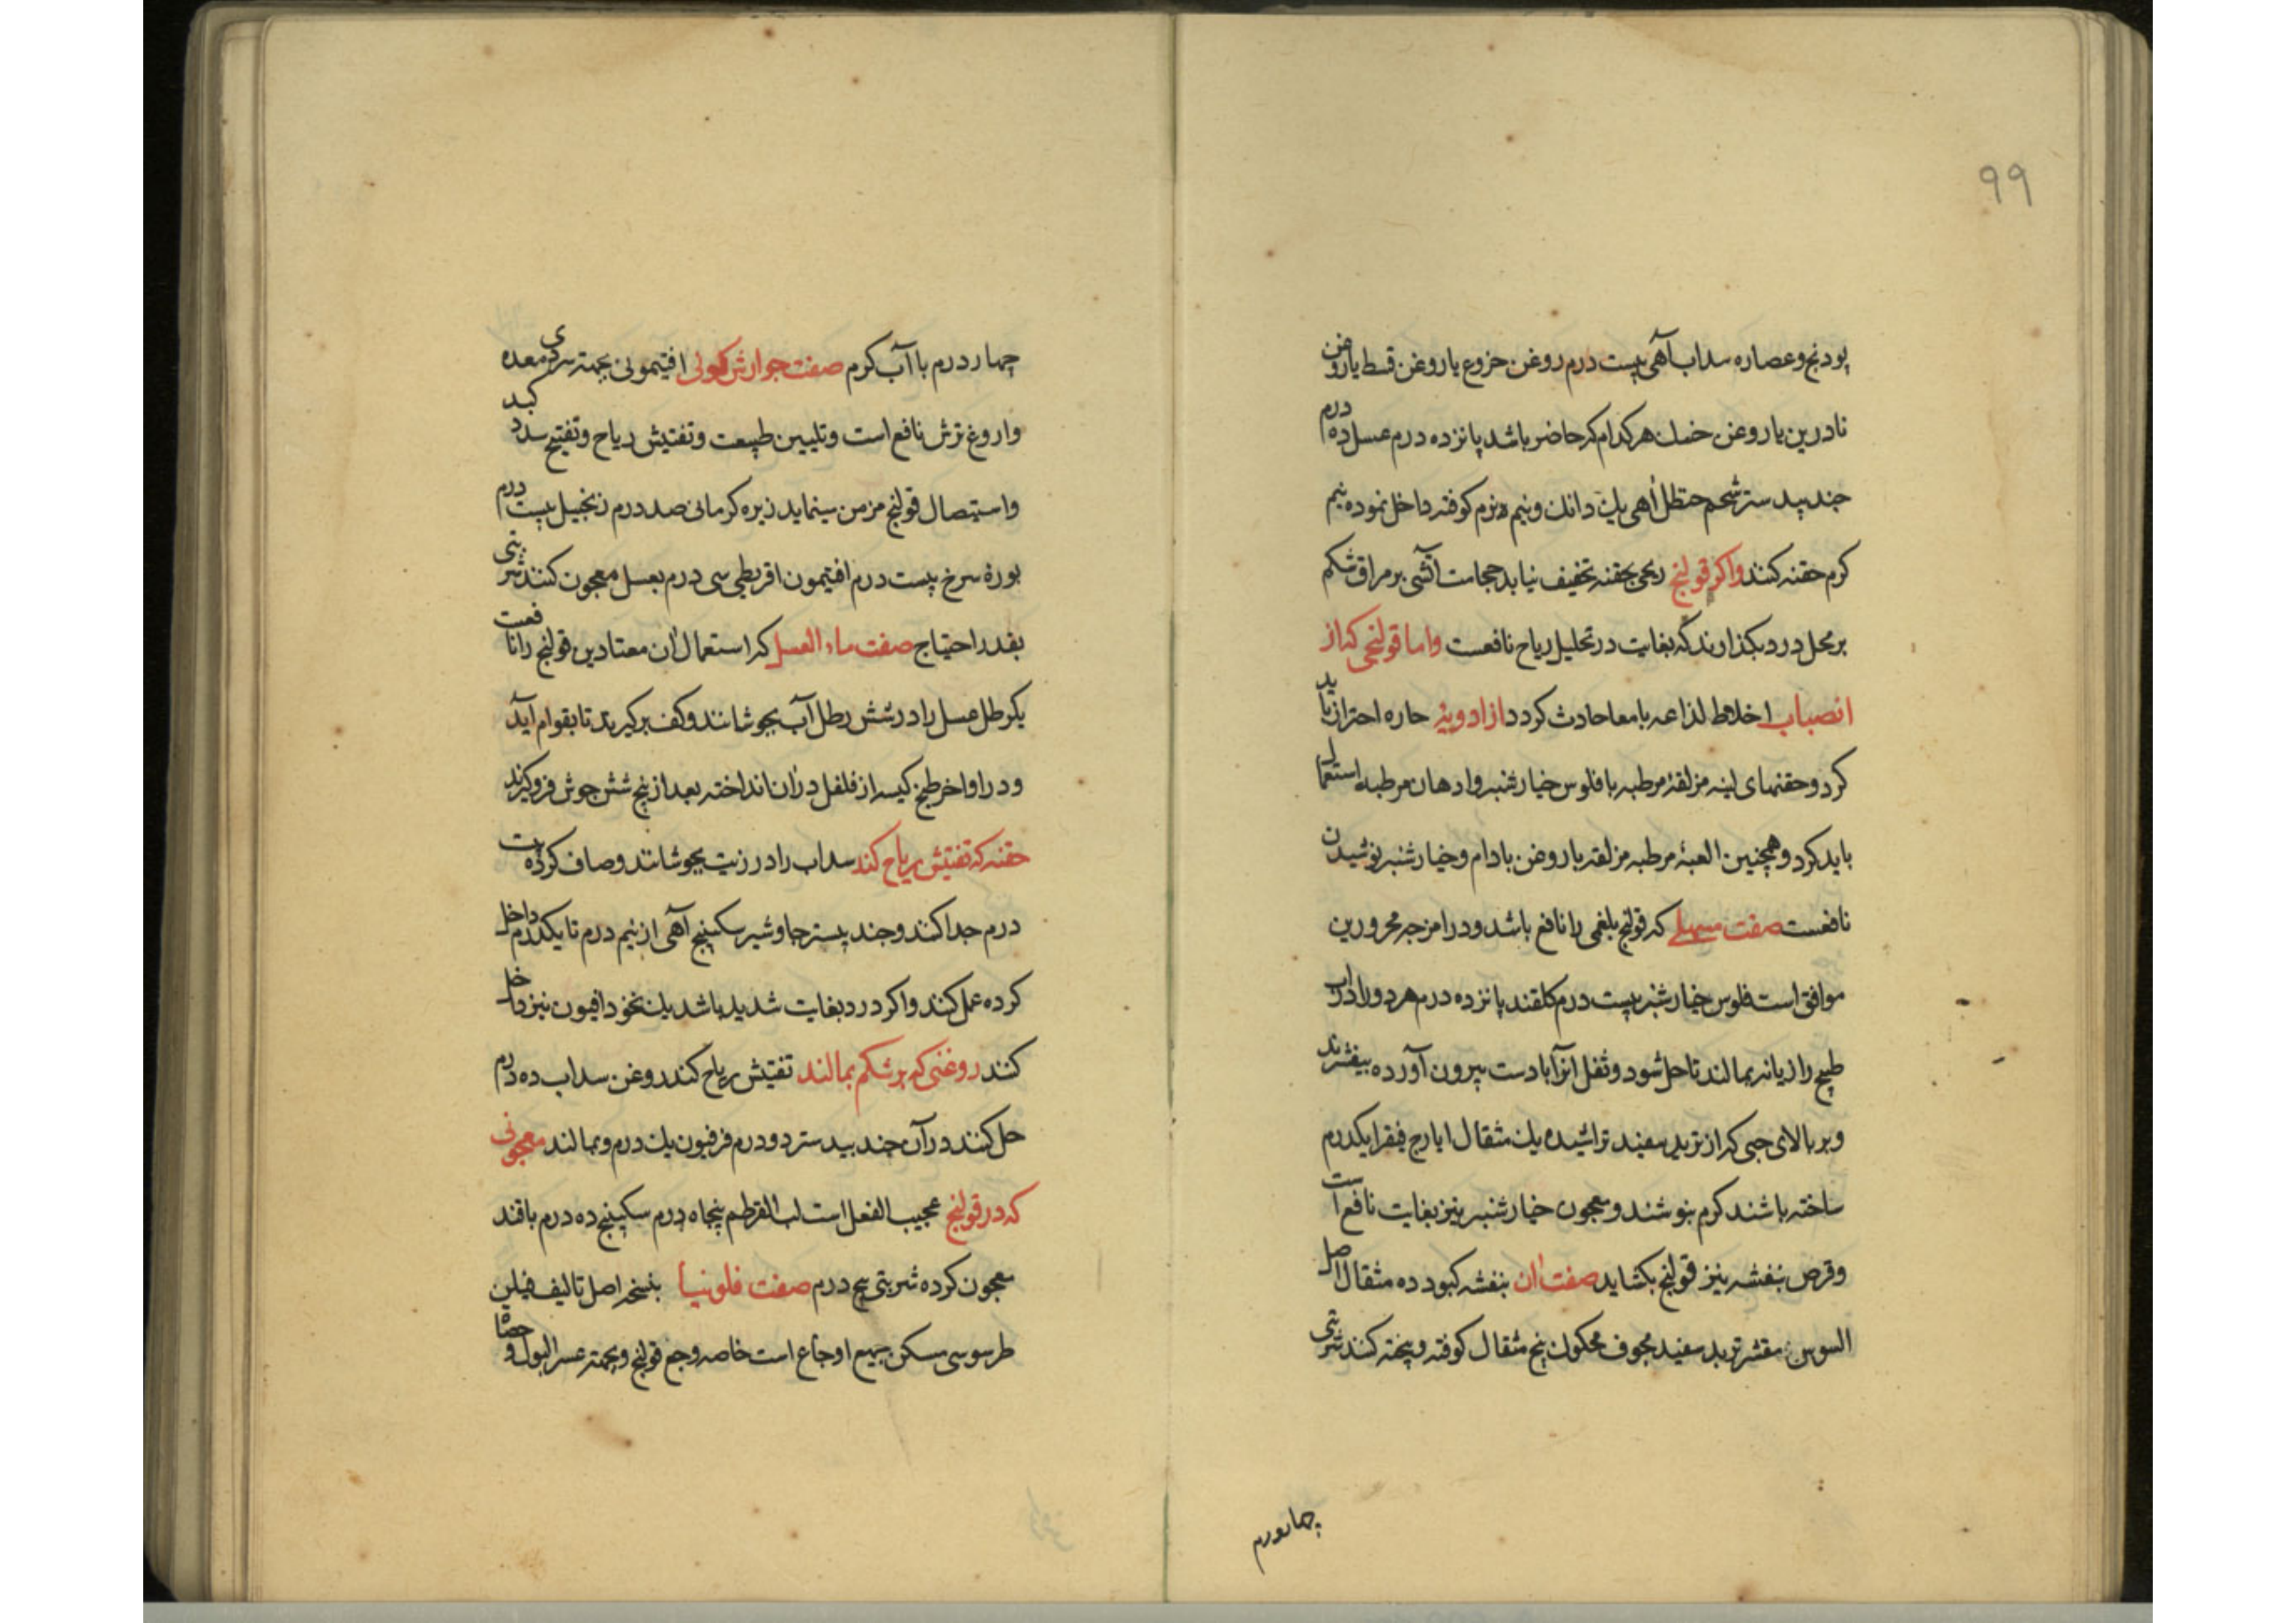 ۹۹
پودنج و عصاره سداب آهی بیست درم روغن خروع یا روغن قسط یا روغن
نادرین یا روغن خسك هر کدام که حاضر باشد پانزده درم عسل ده درم
جند بیدستر شحم حنظل آهی یك دانك و نیم درم کوفته داخل نموده نیم
کرم حقنه کنند واکر قولنج ریحی بحقنه تخفیف نیابد حجامت آتشی بر مراق شکم
بر محل درد بکذارند که بغایت در تحلیل ریاح نافعست واما قولنجی که از
انصباب اخلاط لذاعه بامعا حادث کردد از ادویهٔ حاره احتراز باید
کرد و حقنهای لینه مزلقهٔ مرطبه با فلوس خیارشنبر و ادهان مرطبه استعمال
باید کرد و همچنین العبهٔ مرطبه مزلقه با روغن بادام و خیارشنبر نوشیدن
نافعست صفت مسهلی که قولنج بلغمی را نافع باشد و در امزجه محرورین
موافق است فلوس خیارشنبر بیست درم کلقند پانزده درم هر دو را در آب
طبیخ رازیانه بمالند تا حل شود و ثفل انرا با دست بیرون آورده بیفشرند
و بر بالای حبی که از تربد سفید تراشیده یك مثقال ایارج فیقرا یکدرم
ساخته باشند کرم بنوشند و معجون خیارشنبر نیز بغایت نافع است
و قرص بنفشه نیز قولنج بکشاید صفت ان بنفشه کبود ده مثقال اصل
السوس مقشر تربد سفید مجوف محکوك پنج مثقال کوفته و بیخته کنند شربتی
چهاردرم
چهار درم با آب کرم صفت جوارش کمونی افتیمونی بجهته سردی معده
و اروغ ترش نافع است و تلیین طبیعت و تفتیش ریاح و تفتیح سدد کبد
و استیصال قولنج مزمن مینماید زیره کرمانی صد درم زنجبیل بیست درم
بورهٔ سرخ بیست درم افتیمون اقریطی سی درم بعسل معجون کنند شربتی
بقدر احتیاج صفت ماء العسل که استعمال ان معتادین قولنج را نافعست
یکرطل عسل را در شش رطل آب بجوشانند و کف برکیرند تا بقوام آید
و در اواخر طبخ کیسه از فلفل دران انداخته بعد از پنج شش جوش فروکیرند
حقنه که تفتیش ریاح کند سداب را در زیت بجوشانند و صاف کرده بیست
درم جدا کنند و جند بیستر جاوشیر سکبینج آهی از نیم درم تا یکدرم داخل
کرده عمل کنند و اکر درد بغایت شدید باشد یك نخود افیون نیز داخل
کنند روغنی که بر شکم بمالند تفتیش ریاح کند روغن سداب ده درم
حل کنند در آن جند بیدستر دو درم فرفیون یك درم و بمالند معجونی
که در قولنج عجیب الفعل است لب القرطم پنجاه درم سکبینج ده درم با قند
معجون کرده شربتی پنج درم صفت فلونیا بنسخه اصل تالیف فیلن
طرسوسی مسکن جمیع اوجاع است خاصه وجع قولنج و بجهته عسر البول و حصاة